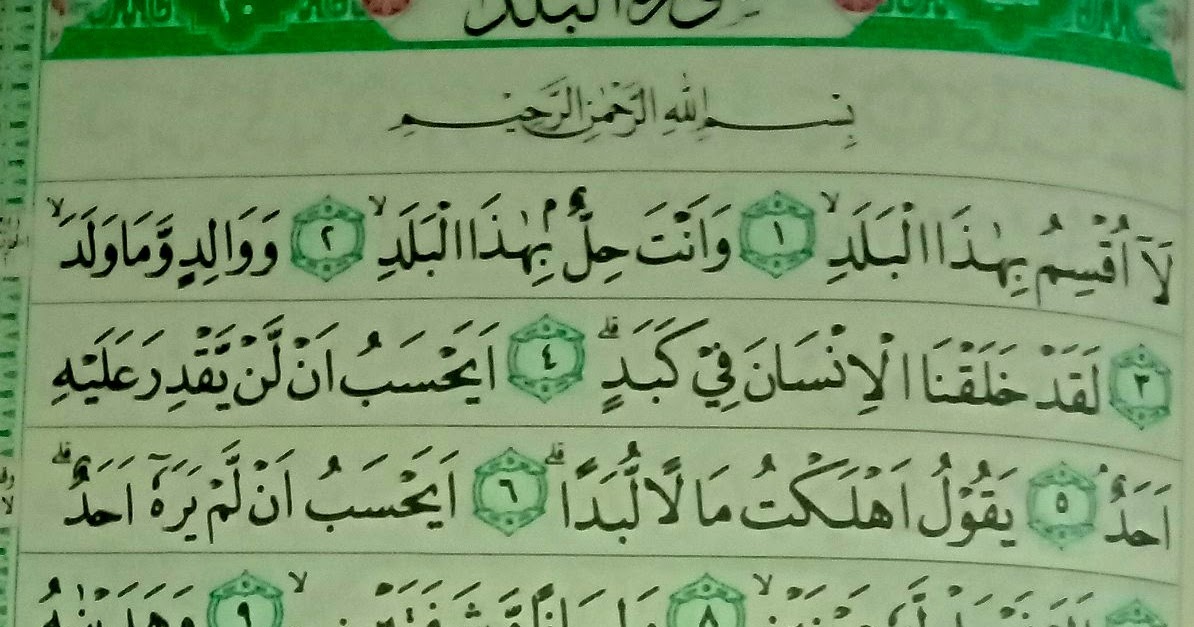 سورة البلد
بِسْمِ اللهِ الرَّحْمٰنِ الرَّحِيْمِ
لَآ اُقْسِمُ بِهٰذَا الْبَلَدِۙ ١ وَاَنْتَ حِلٌّۢ بِهٰذَا الْبَلَدِۙ ٢ وَوَالِدٍ وَّمَا وَلَدَۙ
٣ لَقَدْ خَلَقْنَا الْاِنْسَانَ فِيْ كَبَدٍۗ ٤ اَيَحْسَبُ اَنْ لَّنْ يَّقْدِرَ عَلَيْهِ
اَحَدٌ ٥ يَقُوْلُ اَهْلَكْتُ مَالًا لُّبَدًاۗ ٦ اَيَحْسَبُ اَنْ لَّمْ يَرَهٗٓ اَحَدٌۗ
٨ ٩ وَهَدَيْنٰهُ